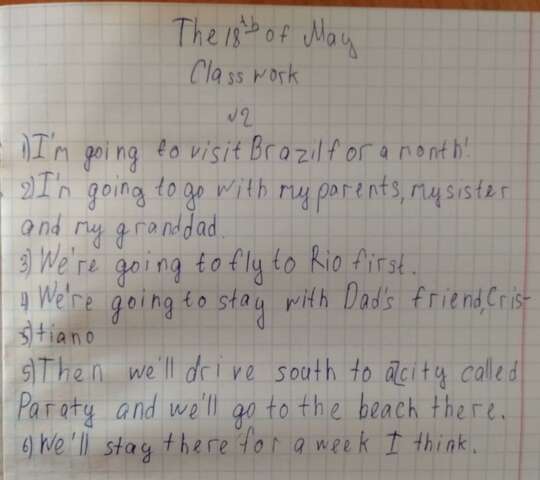 The 18th of May
Class work
v2
1) I'm going to visit Brazil for a month!
2) I'm going to go with my parents, my sister
and my granddad.
3) We're going to fly to Rio first.
4) We're going to stay with Dad's friend, Cris-
5) tiano
5) Then we'll drive south to a city called
Paraty and we'll go to the beach there.
6) We'll stay there for a week I think.